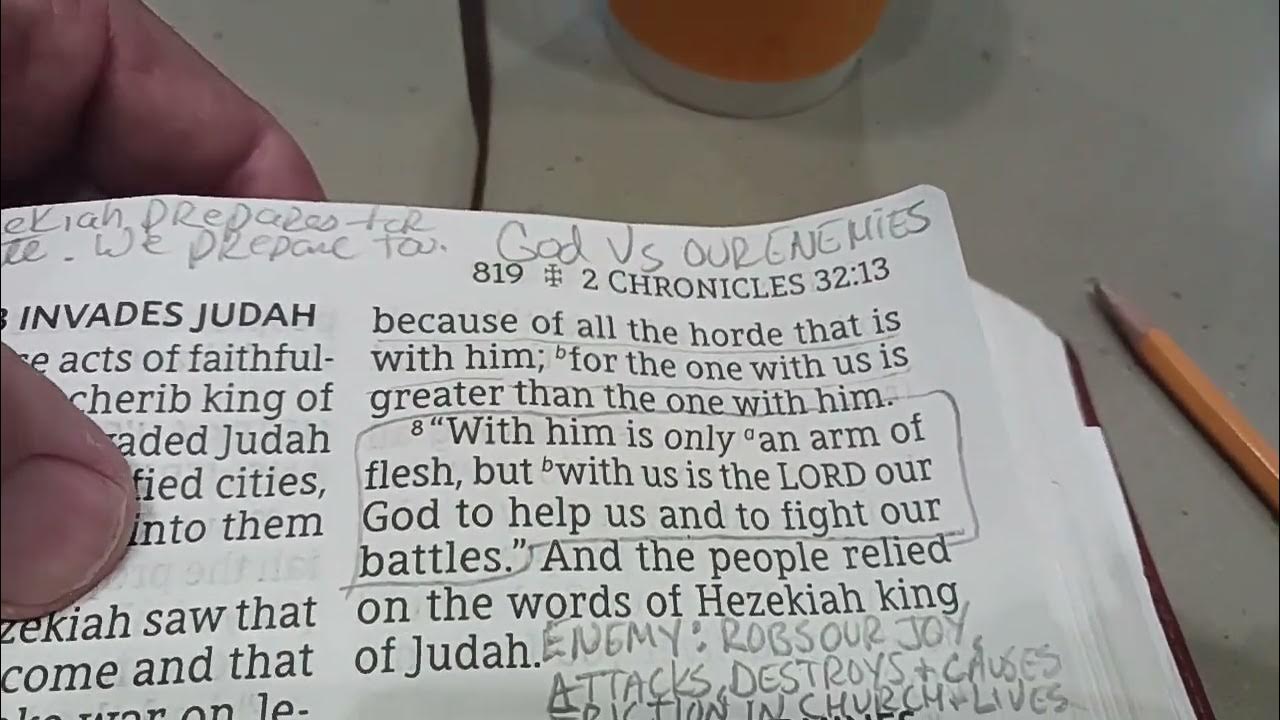 PREPARES FOR
We PREPARE Too.
God Vs OUR ENEMIES
819 ✠ 2 CHRONICLES 32:13
INVADES JUDAH
acts of faithful-
cherib king of
vaded Judah
fied cities,
into them
zekiah saw that
come and that
war on le-
because of all the horde that is
with him; ᵇfor the one with us is
greater than the one with him.
8 “With him is only ᵃan arm of
flesh, but ᵇwith us is the LORD our
God to help us and to fight our
battles.” And the people relied
on the words of Hezekiah king
of Judah.
ENEMY: ROBS OUR JOY,
ATTACKS, DESTROYS + CAUSES
FRICTION IN CHURCH + LIVES